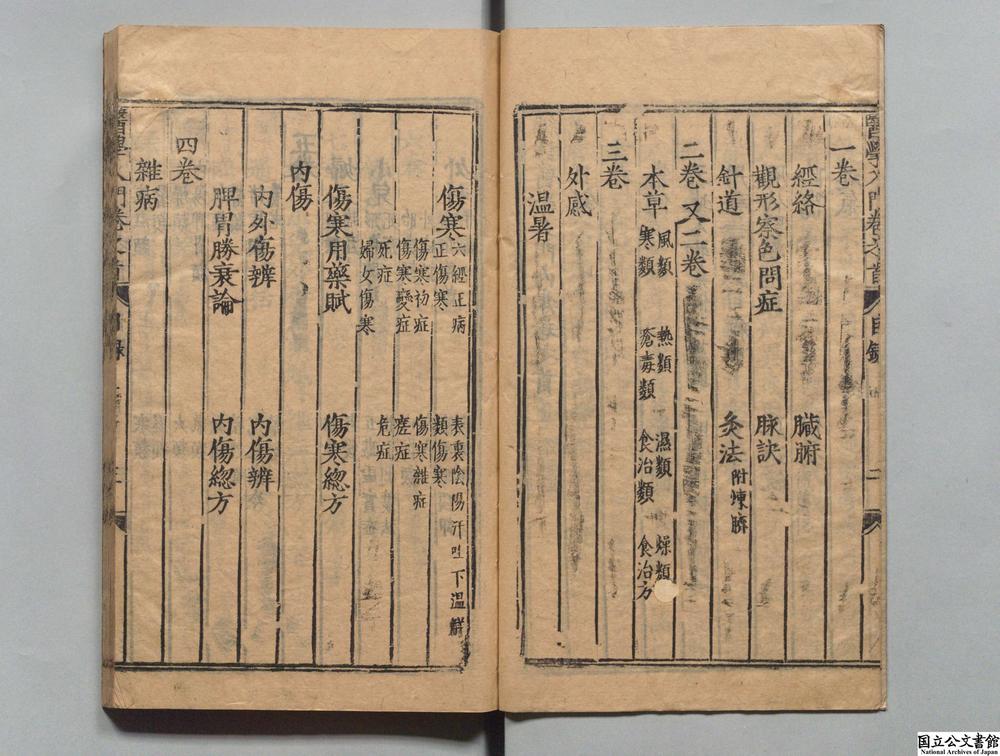 醫學入門卷之首 目錄 二
一卷
經絡 臟腑
觀形察色問症 脉訣
針道 灸法 附煉臍
二卷 又二卷
本草 風類 熱類 濕類 燥類
寒類 瘡毒類 食治類 食治方
三卷
外感
溫暑
傷寒 六經正病 表裏陰陽汗吐下溫解
正傷寒 類傷寒
傷寒初症 傷寒雜症
傷寒變症 壞症
死症 危症
婦女傷寒
傷寒用藥賦 傷寒總方
內傷
內外傷辨 內傷辨
脾胃勝衰論 內傷総方
四卷
雜病
醫學入門卷之首 目錄
国立公文書館
National Archives of Japan